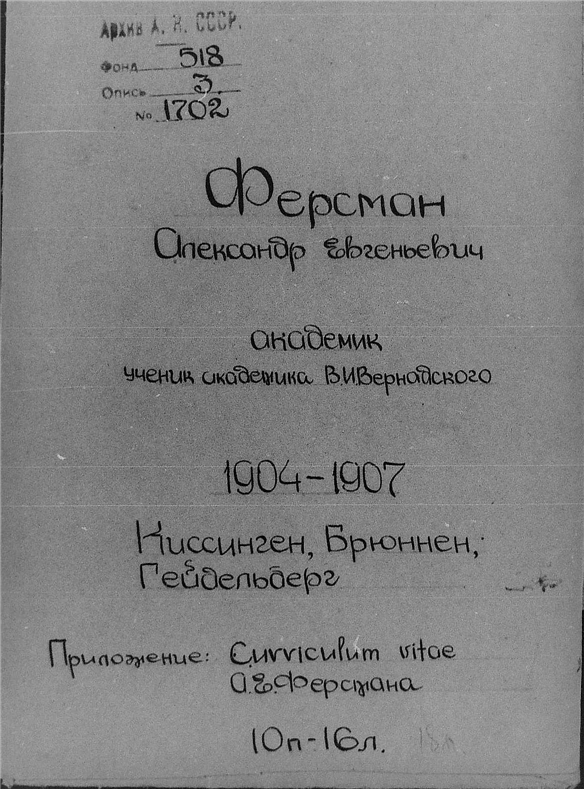 Архив А. Н. СССР.
Фонд 518
Опись 3.
№ 1702
Ферсман
Александр Евгеньевич
академик
ученик академика В.И.Вернадского
1904-1907
Киссинген, Брюннен,
Гейдельберг
Приложение: Curriculum vitae
А.Е.Ферсмана
10п-16л. 18л.